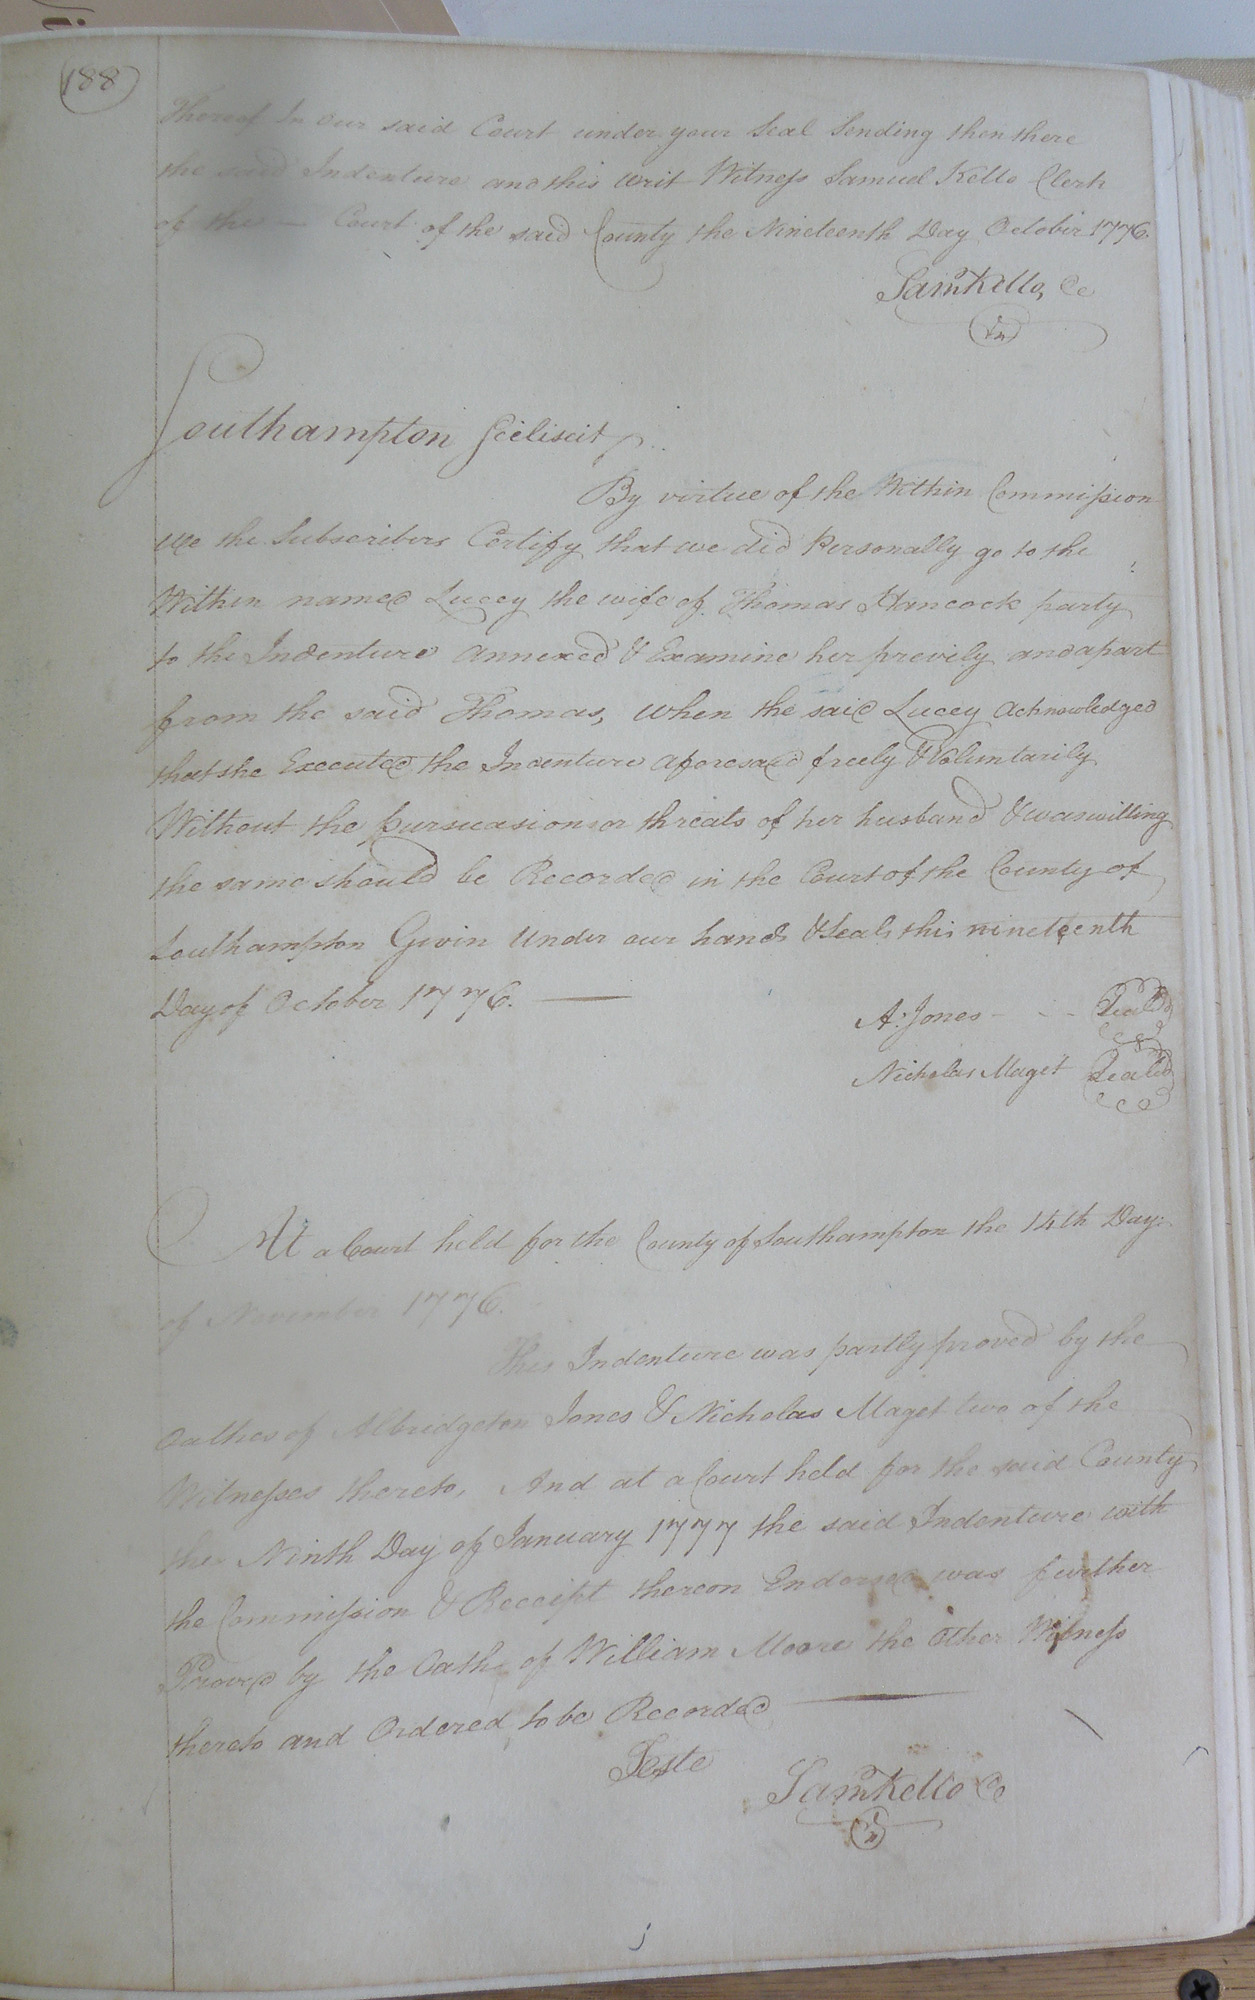 188
Thereof In our said Court under your Seal Sending then there
the said Indenture and this writ Witness Samuel Kello Clerk
of the — Court of the said County the Nineteenth Day October 1776.
Saml Kello, Cc
Southampton Scilicit
By virtue of the Within Commission
We the Subscribers Certify that we did Personally go to the
Within named Lucey the wife of Thomas Hancock party
to the Indenture annexed & Examine her previly and apart
from the said Thomas, When the said Lucey Acknowledged
that she Executed the Indenture aforesaid freely & Voluntarily
Without the pursuasions or threats of her husband & was willing
the same should be Recorded in the Court of the County of
Southampton Givin Under our hands & Seals this nineteenth
Day of October 1776. —
A: Jones - - - Seald
Nicholas Maget Seald
At a Court held for the County of Southampton the 14th Day:
of November 1776.
This Indenture was partly proved by the
Oathes of Albridgeton Jones & Nicholas Maget two of the
Witnesses thereto, And at a Court held for the said County
the Ninth Day of January 1777 the said Indenture with
the Commission & Receipt thereon Endorsed was further
Proved by the Oath of William Moore the Other Witness
thereto and Ordered to be Recorded —
Teste
Saml Kello Cc